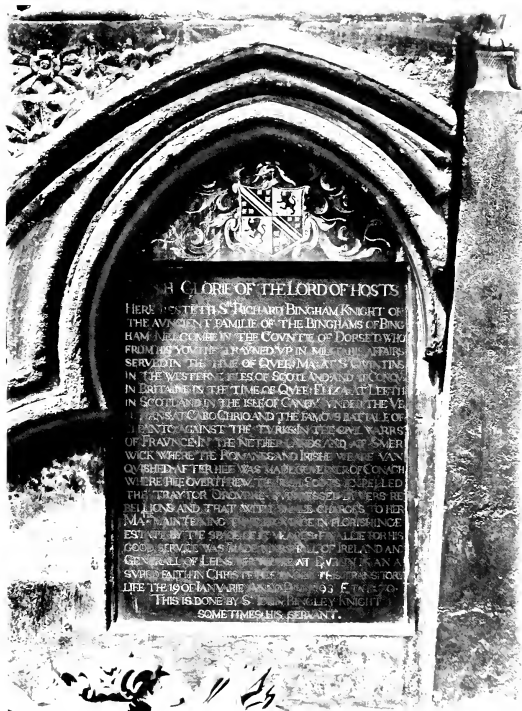 GLORIE OF THE LORD OF HOSTS
HERE RESTETH Sr RICHARD BINGHAM KNIGHT OF
THE AVNCIENT FAMILIE OF THE BINGHAMS OF BING
HAM MELCOMBE IN THE COVNTIE OF DORSET WHO
FROM HIS YOVTHE TRAYNED VP IN MILITARIE AFFAIRS
SERVED IN THE TIME OF QVEE MARY AT St QVINTINS
IN THE WESTERNE ILES OF SCOTLAND AND AT CONQVE
IN BRITAINE IN THE TIME OF QVEE ELIZA AT LEETH
IN SCOTLAND IN THE ISLE OF CANDY VNDER THE VE
AT CABO CHRIO AND THE FAMOVS BATTALE OF
AGAINST THE TVRKS IN THE CIVIL WARRS
OF FRAVNCE IN THE NETHERLANDS AND AT SMER
WICK WHERE THE ROMANES AND IRISHE WEARE VAN
QVISHED AFTER HEE WAS MADE GOVERNER OF CONACH
WHERE HEE OVERTHREW THE IRISH SCOTS EXPELLED
THE TRAYTOR SVPPRESSED DYVERS RE
BELLIONS AND THAT WITH CHARGES TO HER
MAtie MAINTEANING THE PROVINCE IN FLORISHINGE
ESTATE BY THE SPACE OF YEARES FINALLIE FOR HIS
GOOD SERVICE WAS MADE MARSHALL OF IRELAND AND
GENERALL OF LEINSTER AT DVBLIN IN AN A
SVRED FAITH IN CHRIST THIS TRANSITORY
LIFE THE 19 OF IANVARIE
THIS IS DONE BY Sr BINGLEY KNIGHT
SOMETIMES HIS SERVANT.